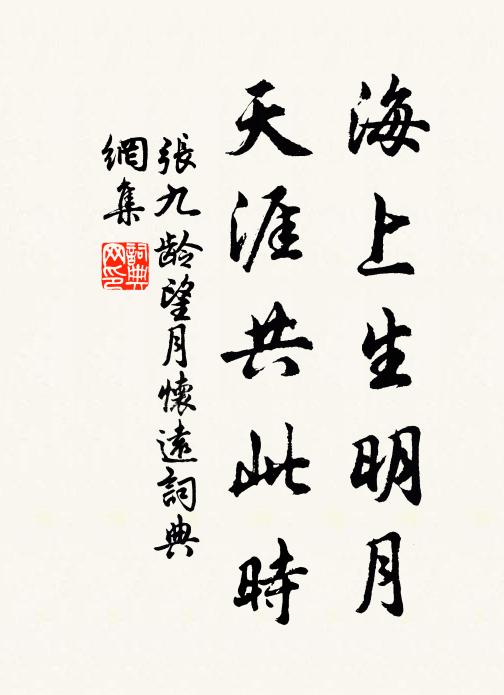 海上生明月
天涯共此時
張九龄望月懷遠詞典
網集
詞典網印